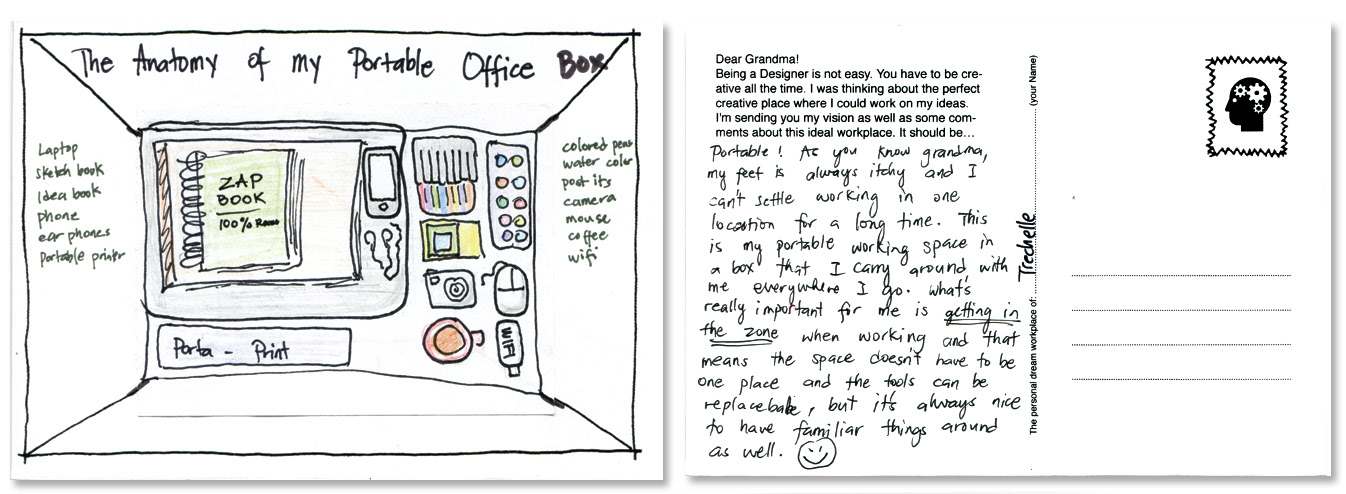 The Anatomy of my Portable Office Box
Laptop
sketch book
Idea book
phone
ear phones
Portable printer
ZAP
BOOK
100% Reuse
Porta - Print
WIFI
colored pens
water color
post its
camera
mouse
coffee
wifi
Dear Grandma!
Being a Designer is not easy. You have to be cre-
ative all the time. I was thinking about the perfect
creative place where I could work on my ideas.
I'm sending you my vision as well as some com-
ments about this ideal workplace. It should be...
Portable! As you know grandma,
my feet is always itchy and I
can't settle working in one
location for a long time. This
is my portable working space in
a box that I carry around with
me everywhere I go. what's
really important for me is getting in
the zone when working and that
means the space doesn't have to be
one place and the tools can be
replacebable, but it's always nice
to have familiar things around
as well.
The personal dream workplace of: Trechelle (your Name)